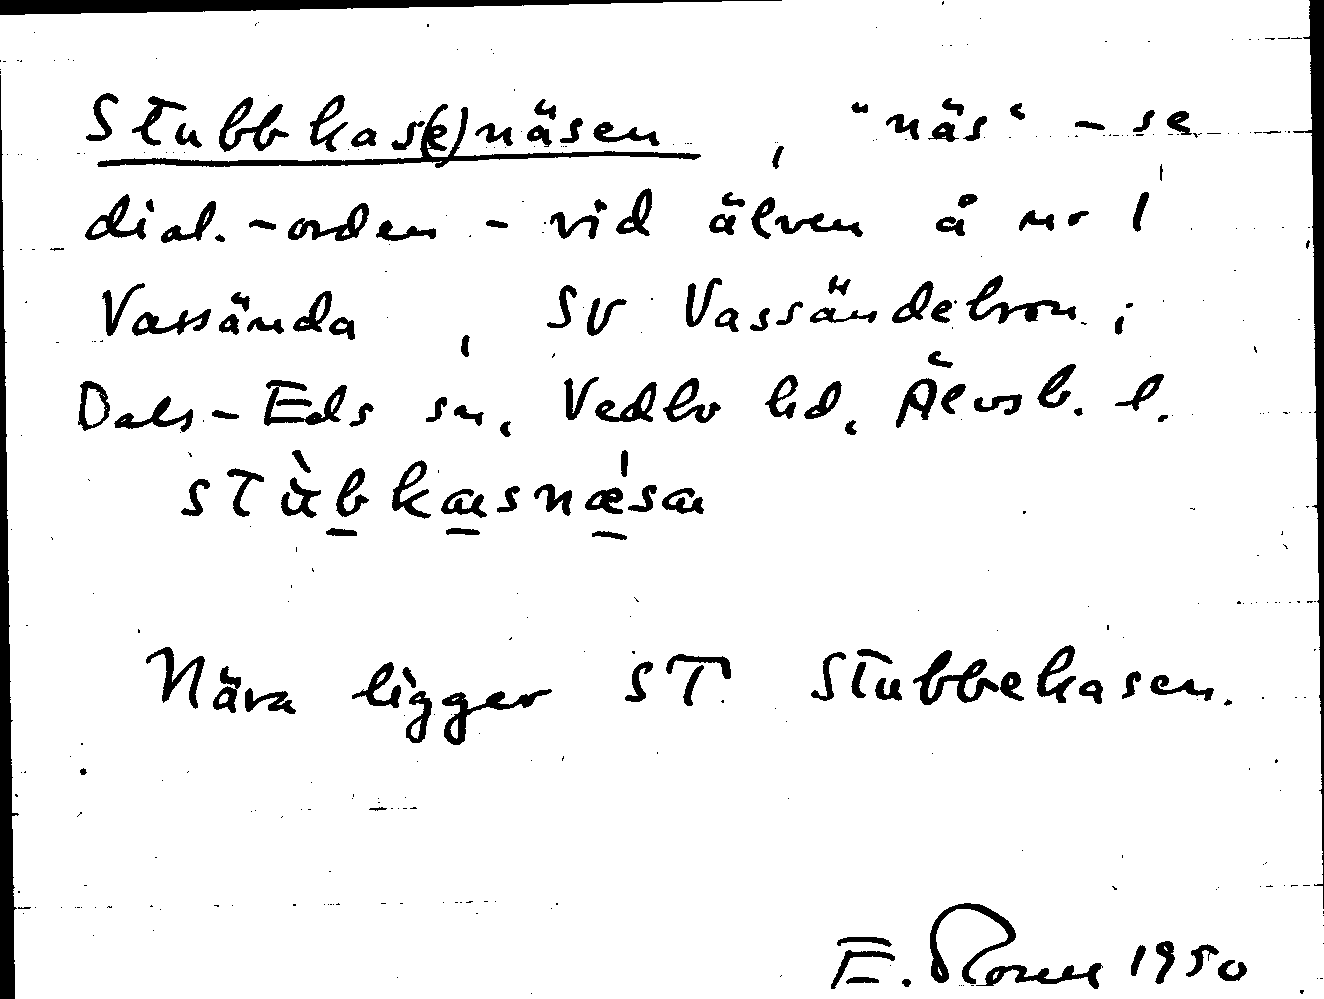 Stubbkas(e)näsen, "näs" - se
dial.-orden - vid älven å nr 1
Vassända, SV Vassändebron i
Dals-Eds sn, Vedbo hd, Älvsb. l.
stùbkasnǽsa
Nära ligger ST Stubbekasen.
E. 1950